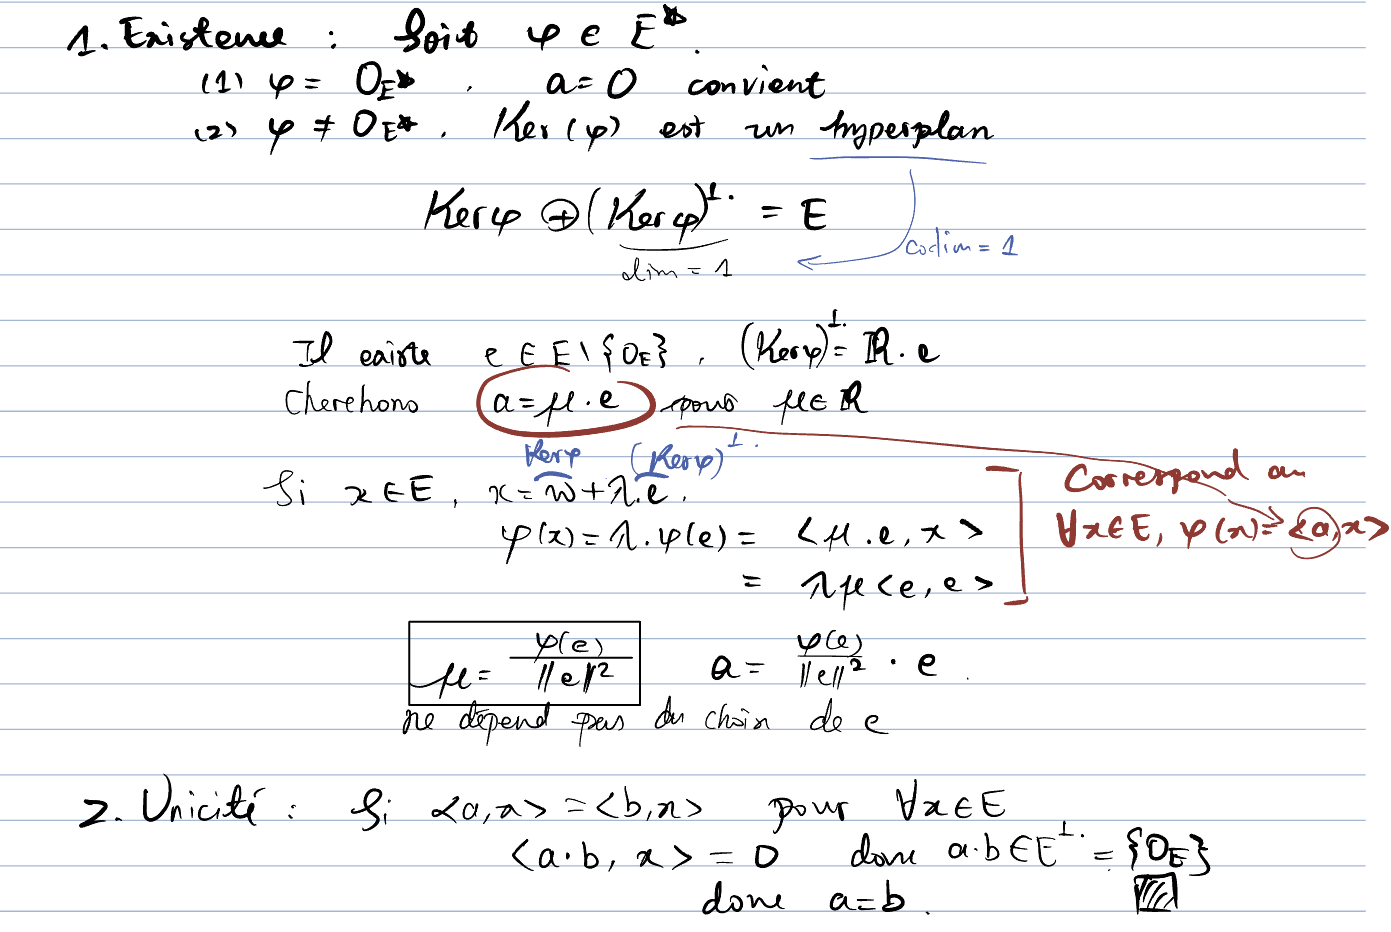 1. Existence : Soit φ ∈ E*.
(1) φ = 0_E* . a = 0 convient
(2) φ ≠ 0_E* . Ker(φ) est un hyperplan
Kerφ ⊕ (Kerφ)^⊥. = E
codim = 1
dim = 1
Il existe e ∈ E \ {0_E} , (Kerφ)^⊥. = ℝ · e
Cherchons a = μ · e pour μ ∈ ℝ
Kerφ (Kerφ)^⊥.
Si x ∈ E, x = w + λ.e .
Correspond au
φ(x) = λ.φ(e) = <μ.e, x>
∀x∈E, φ(x) = <a,x>
= λμ<e, e>
μ = φ(e)/||e||² a = φ(e)/||e||² · e .
ne dépend pas du choix de e
2. Unicité : Si <a,x> = <b,x> pour ∀x∈E
<a-b, x> = 0 donc a-b ∈ E^⊥. = {0_E}
donc a=b .